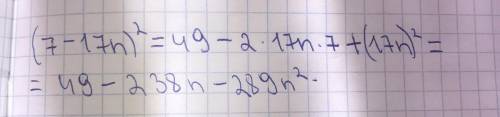 (7-17n)² = 49 - 2·17n·7 + (17n)² =
= 49 - 238n - 289n².